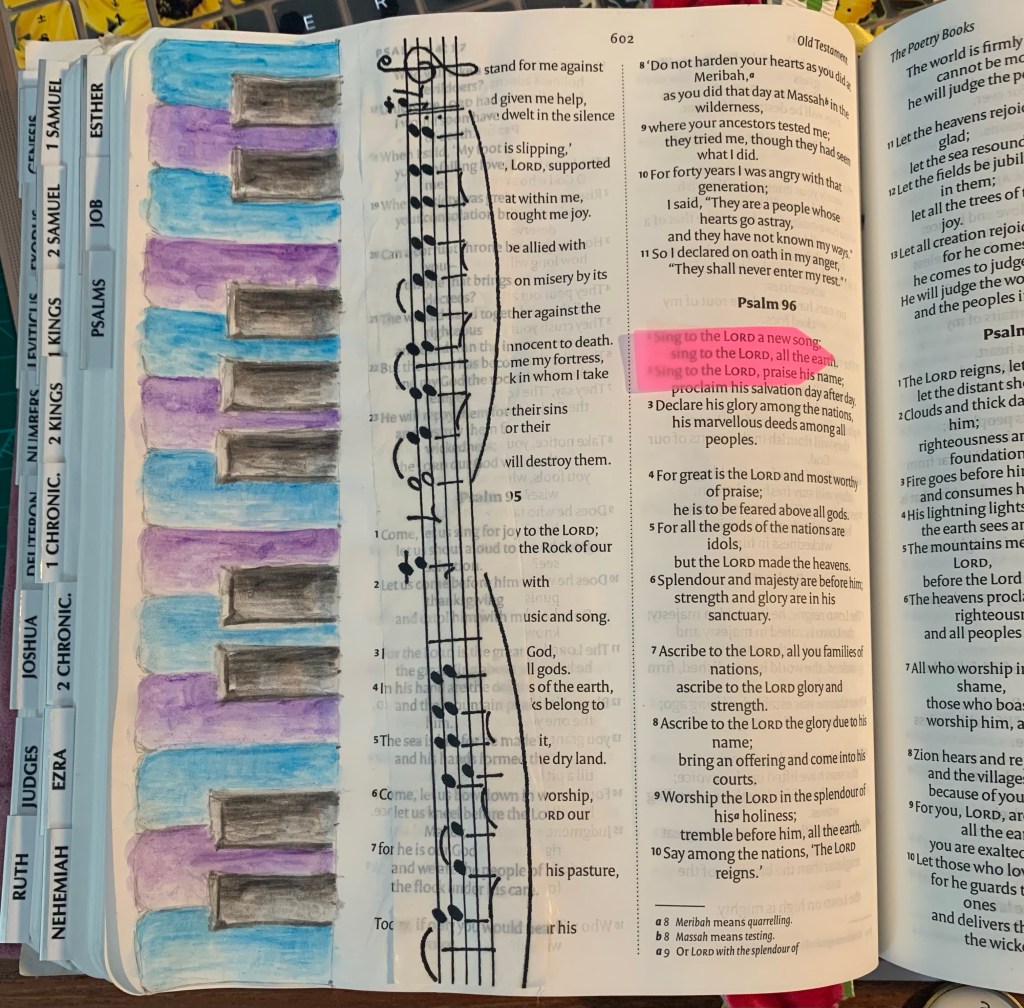 GENESIS
EXODUS
LEVITICUS
NUMBERS
DEUTERON.
JOSHUA
JUDGES
RUTH
1 SAMUEL
2 SAMUEL
1 KINGS
2 KINGS
1 CHRONIC.
2 CHRONIC.
EZRA
NEHEMIAH
ESTHER
JOB
PSALMS
stand for me against
had given me help,
have dwelt in the silence
When 'My foot is slipping,'
love, LORD, supported
19 When was great within me,
your consolation brought me joy.
20 Can a throne be allied with
that brings on misery by its
21 together against the
the innocent to death.
22 But has become my fortress,
God the rock in whom I take
23 He will their sins
for their
will destroy them.
Psalm 95
1 Come, let us sing for joy to the LORD;
let us shout aloud to the Rock of our
2 Let us come before him with
thanksgiving
and him with music and song.
3 For the LORD is the great God,
the great all gods.
4 In his hand are the depths of the earth,
and the mountain peaks belong to
5 The sea is for he made it,
and his hands formed the dry land.
6 Come, let us bow down in worship,
let us kneel before the LORD our
7 for he is our God
and we are the people of his pasture,
the flock under his care.
Today, if only you would hear his
602
Old Testament
8 'Do not harden your hearts as you did at
Meribah,a
as you did that day at Massahb in the
wilderness,
9 where your ancestors tested me;
they tried me, though they had seen
what I did.
10 For forty years I was angry with that
generation;
I said, "They are a people whose
hearts go astray,
and they have not known my ways."
11 So I declared on oath in my anger,
"They shall never enter my rest."'
Psalm 96
1 Sing to the LORD a new song;
sing to the LORD, all the earth.
2 Sing to the LORD, praise his name;
proclaim his salvation day after day.
3 Declare his glory among the nations,
his marvellous deeds among all
peoples.
4 For great is the LORD and most worthy
of praise;
he is to be feared above all gods.
5 For all the gods of the nations are
idols,
but the LORD made the heavens.
6 Splendour and majesty are before him;
strength and glory are in his
sanctuary.
7 Ascribe to the LORD, all you families of
nations,
ascribe to the LORD glory and
strength.
8 Ascribe to the LORD the glory due to his
name;
bring an offering and come into his
courts.
9 Worship the LORD in the splendour of
hisa holiness;
tremble before him, all the earth.
10 Say among the nations, 'The LORD
reigns.'
a 8 Meribah means quarrelling.
b 8 Massah means testing.
a 9 Or LORD with the splendour of
The Poetry Books
The world is firmly
cannot be mo
he will judge the pe
11 Let the heavens rejoi
glad;
let the sea resound
12 Let the fields be jubil
in them;
let all the trees of
joy.
13 Let all creation rejoi
for he comes
he comes to judge
He will judge the wo
and the peoples i
Psalm
1 The LORD reigns, let
let the distant sho
2 Clouds and thick da
him;
righteousness an
foundation
3 Fire goes before him
and consumes h
4 His lightning lights
the earth sees an
5 The mountains me
LORD,
before the Lord
6 The heavens procla
righteousn
and all peoples
7 All who worship im
shame,
those who boas
worship him, a
8 Zion hears and re
and the villages
because of you
9 For you, LORD, are
all the ear
you are exalted
10 Let those who lov
for he guards t
ones
and delivers th
the wicke